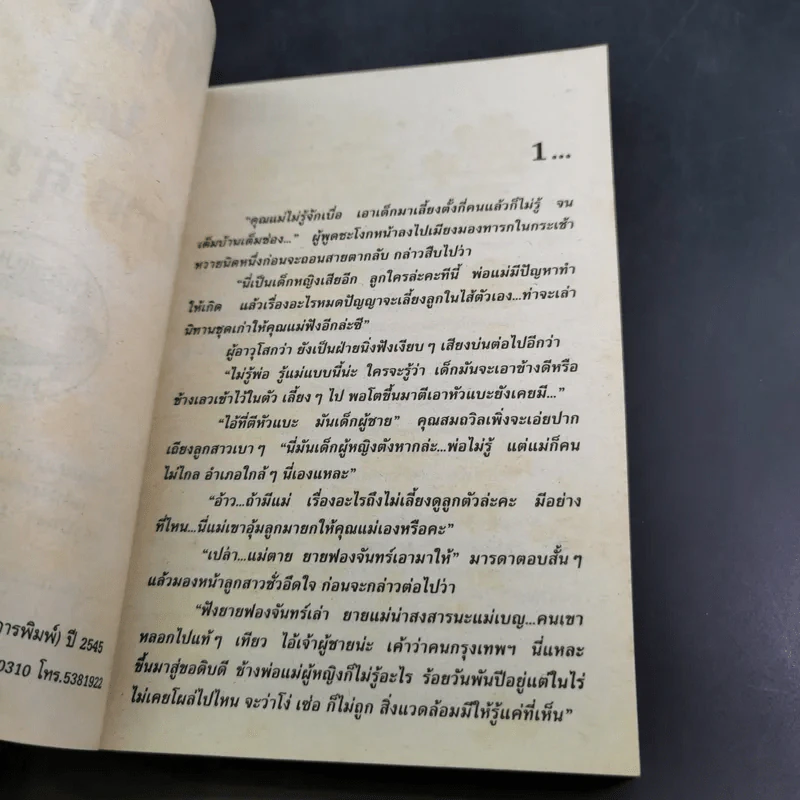 1...
“คุณแม่ไม่รู้จักเบื่อ เอาเด็กมาเลี้ยงตั้งกี่คนแล้วก็ไม่รู้ จน
เต็มบ้านเต็มช่อง...” ผู้พูดชะโงกหน้าลงไปเมียงมองทารกในกระเช้า
หวายนิดหนึ่งก่อนจะถอนสายตากลับ กล่าวสืบไปว่า
“นี่เป็นเด็กหญิงเสียอีก ลูกใครล่ะคะทีนี้ พ่อแม่มีปัญหาทำ
ให้เกิด แล้วเรื่องอะไรหมดปัญญาจะเลี้ยงลูกในไส้ตัวเอง...ท่าจะเล่า
นิทานชุดเก่าให้คุณแม่ฟังอีกล่ะซี”
ผู้อาวุโสกว่า ยังเป็นฝ่ายนิ่งฟังเงียบๆ เสียงบ่นต่อไปอีกว่า
“ไม่รู้พ่อ รู้แม่แบบนี้น่ะ ใครจะรู้ว่า เด็กมันจะเอาข้างดีหรือ
ข้างเลวเข้าไว้ในตัว เลี้ยงๆ ไป พอโตขึ้นมาตีเอาหัวแบะยังเคยมี...”
“ไอ้ที่ตีหัวแบะ มันเด็กผู้ชาย” คุณสมถวิลเพิ่งจะเอ่ยปาก
เถียงลูกสาวเบาๆ “นี่มันเด็กผู้หญิงตังหากล่ะ...พ่อไม่รู้ แต่แม่ก็คน
ไม่ไกล อำเภอใกล้ๆ นี่เองแหละ”
“อ้าว...ถ้ามีแม่ เรื่องอะไรถึงไม่เลี้ยงดูลูกตัวล่ะคะ มีอย่าง
ที่ไหน...นี่แม่เขาอุ้มลูกมายกให้คุณแม่เองหรือคะ”
“เปล่า...แม่ตาย ยายฟองจันทร์เอามาให้” มารดาตอบสั้นๆ
แล้วมองหน้าลูกสาวชั่วอึดใจ ก่อนจะกล่าวต่อไปว่า
“ฟังยายฟองจันทร์เล่า ยายแม่น่าสงสารนะแม่เบญ...คนเขา
หลอกไปแท้ๆ เทียว ไอ้เจ้าผู้ชายน่ะ เค้าว่าคนกรุงเทพฯ นี่แหละ
ขึ้นมาสู่ขอดิบดี ข้างพ่อแม่ผู้หญิงก็ไม่รู้อะไร ร้อยวันพันปีอยู่แต่ในไร่
ไม่เคยโผล่ไปไหน จะว่าโง่ เซ่อ ก็ไม่ถูก สิ่งแวดล้อมมีให้รู้แค่ที่เห็น”
ารพิมพ์) ปี 2545
0310 โทร.5381922